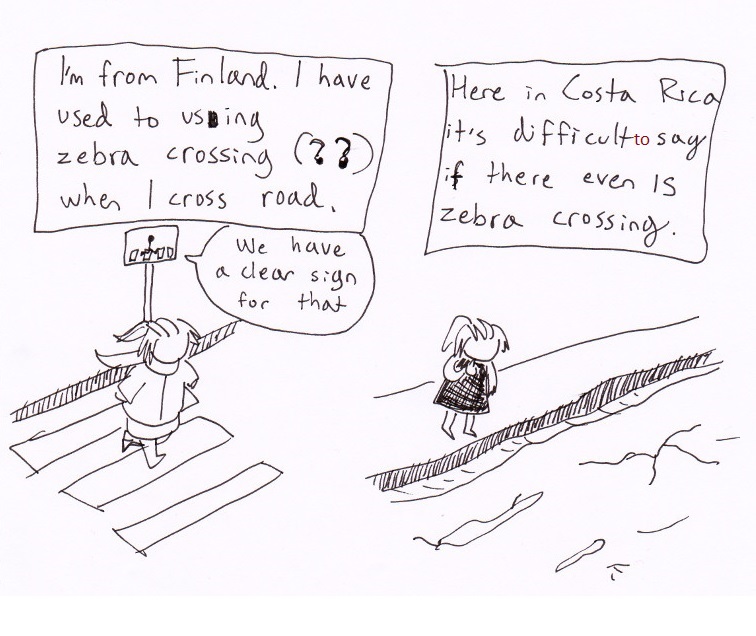 I'm from Finland. I have
used to using
zebra crossing (??)
when I cross road.
We have
a clear sign
for that
Here in Costa Rica
it's difficult to say
if there even is
zebra crossing.